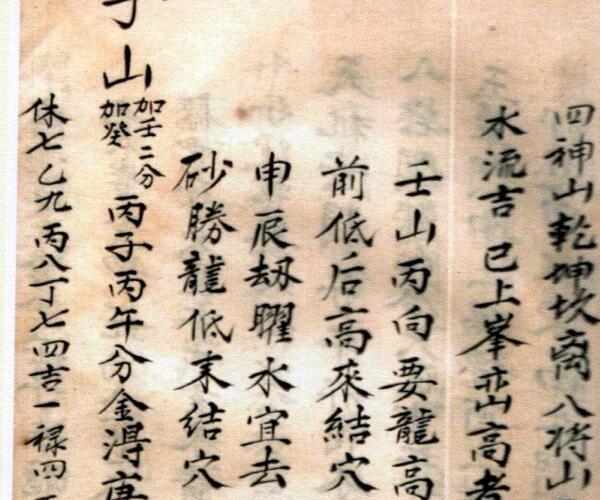 四神山乾坤坎离八将山
水流吉 已上峯峦高者
壬山丙向要龍高
前低后高來結穴
申辰劫曜水宜去
砂勝龍低末結穴
子山 加壬加癸二分 丙子丙午分金得庚
休七乙九丙八丁七四吉一禄四